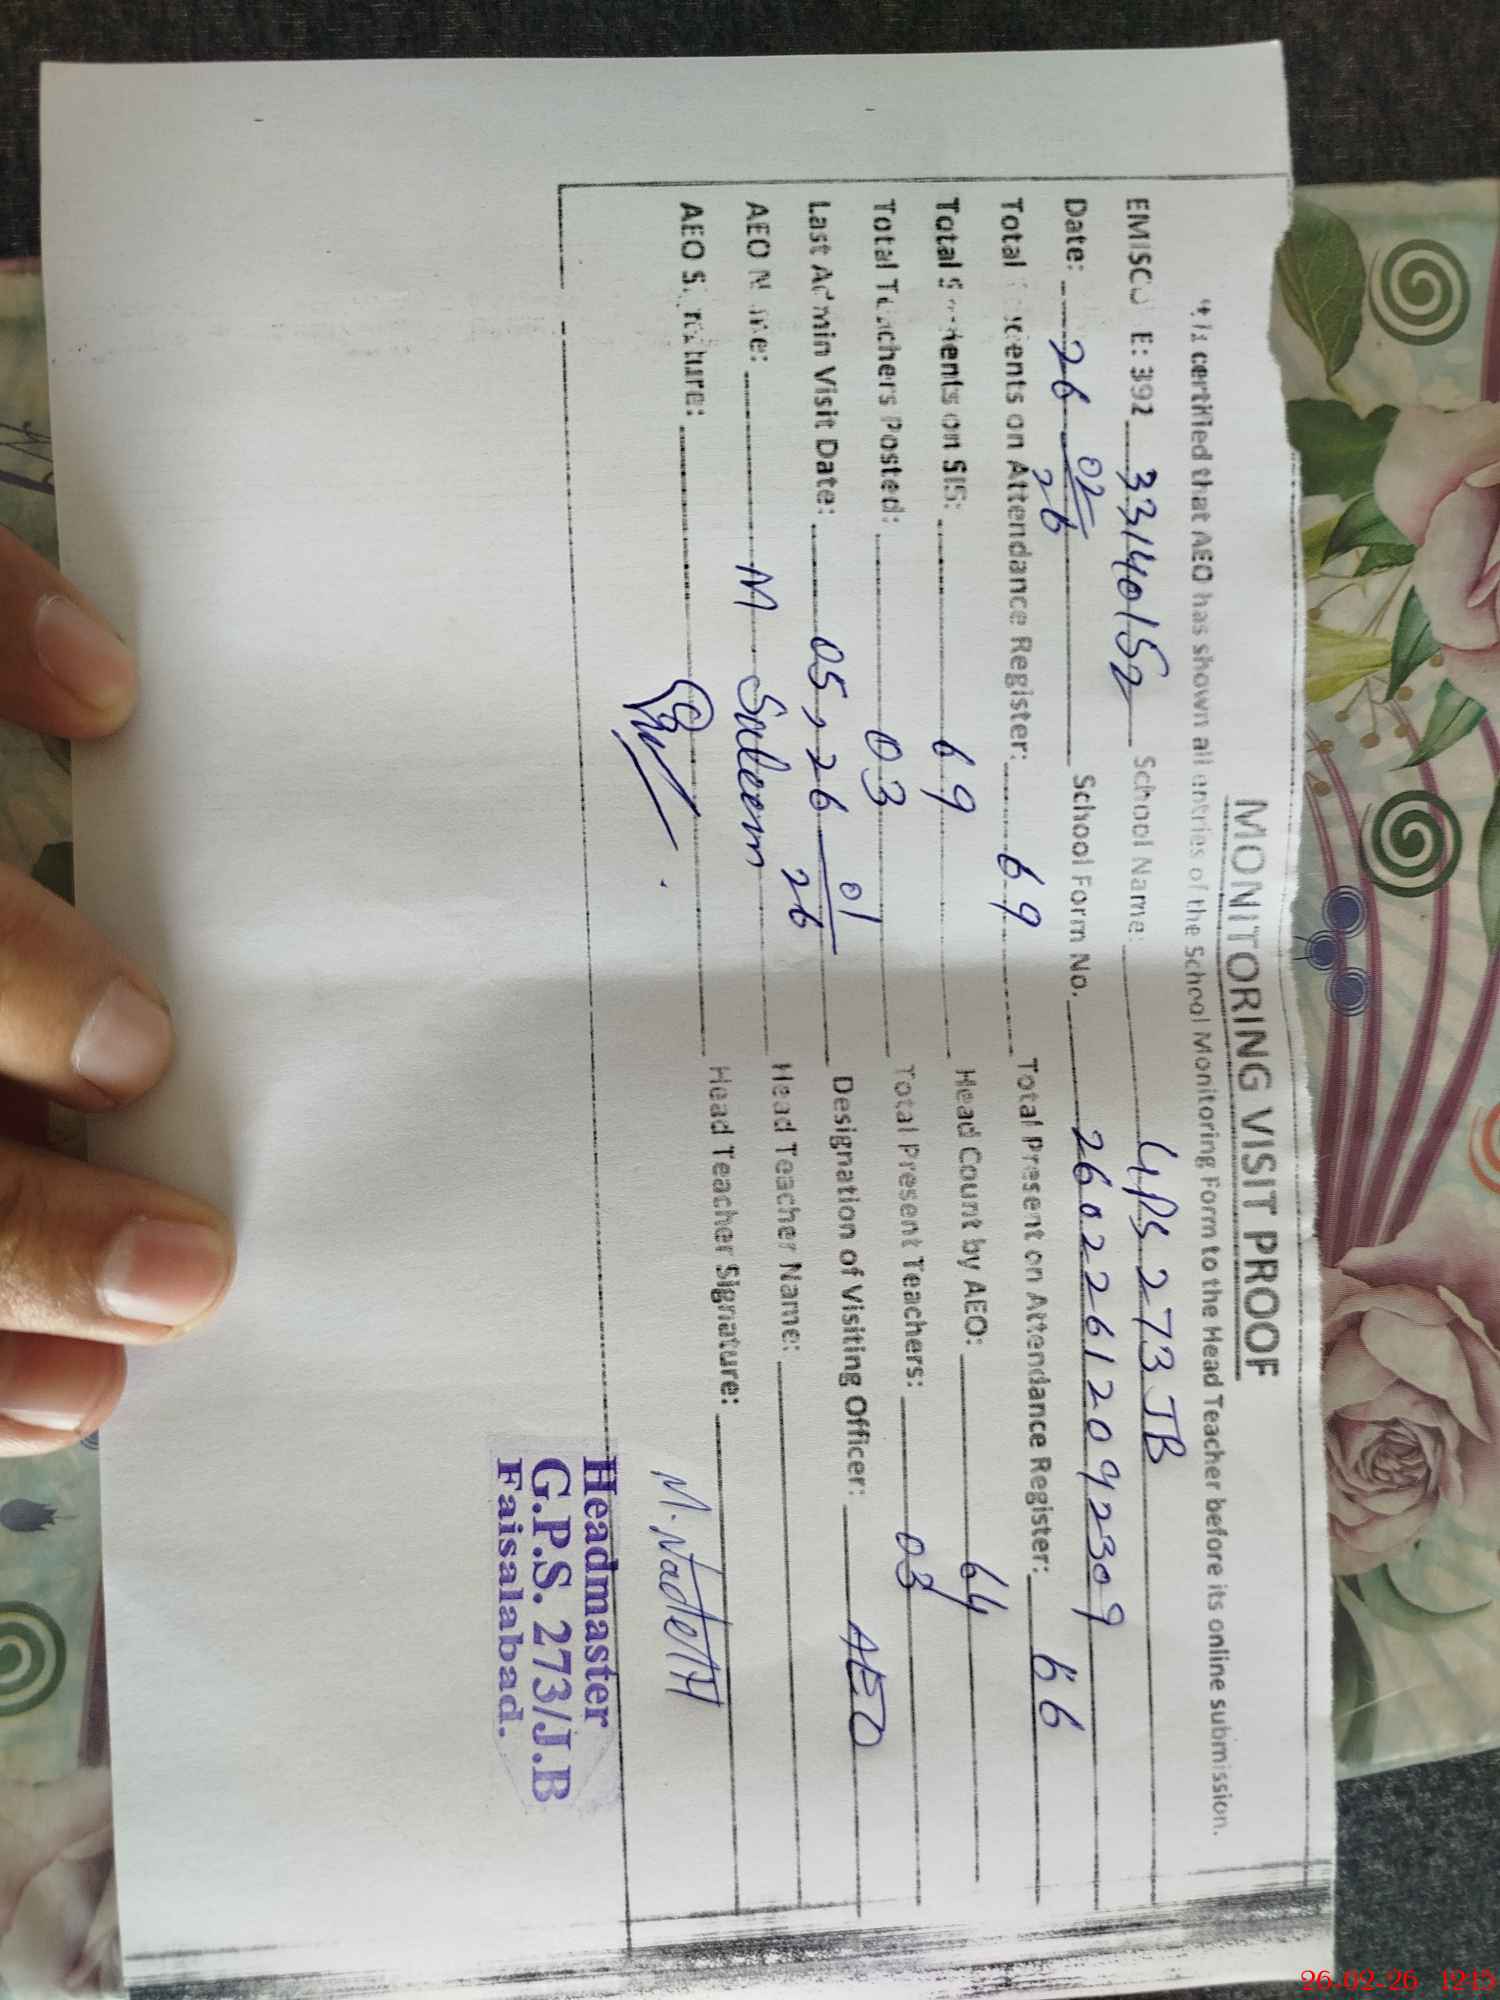 MONITORING VISIT PROOF
It is certified that AEO has shown all entries of the School Monitoring Form to the Head Teacher before its online submission.
EMISCODE: 392 33140152 School Name: GPS 273 JB
Date: 26 02/26 School Form No. 260226120 9230 9
Total Students on Attendance Register: 69 Total Present on Attendance Register: 66
Total Students on SIS: 69 Head Count by AEO: 64
Total Teachers Posted: 03 Total Present Teachers: 03
Last Admin Visit Date: 05, 26 01/26 Designation of Visiting Officer: AEO
AEO Name: M Saleem Head Teacher Name:
AEO Signature: Head Teacher Signature:
Headmaster
G.P.S. 273/J.B
Faisalabad.
26-02-26 1215